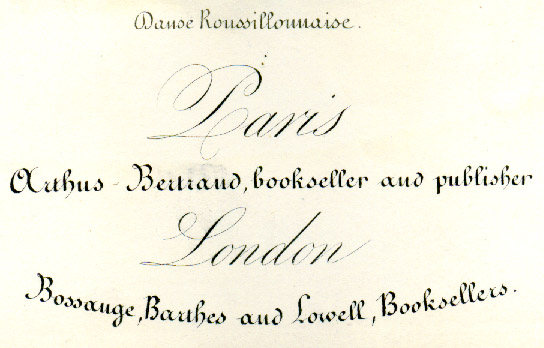 Danse Roussillonnaise.
Paris
Arthus-Bertrand, bookseller and publisher
London
Bossange, Barthes and Lowell, Booksellers.